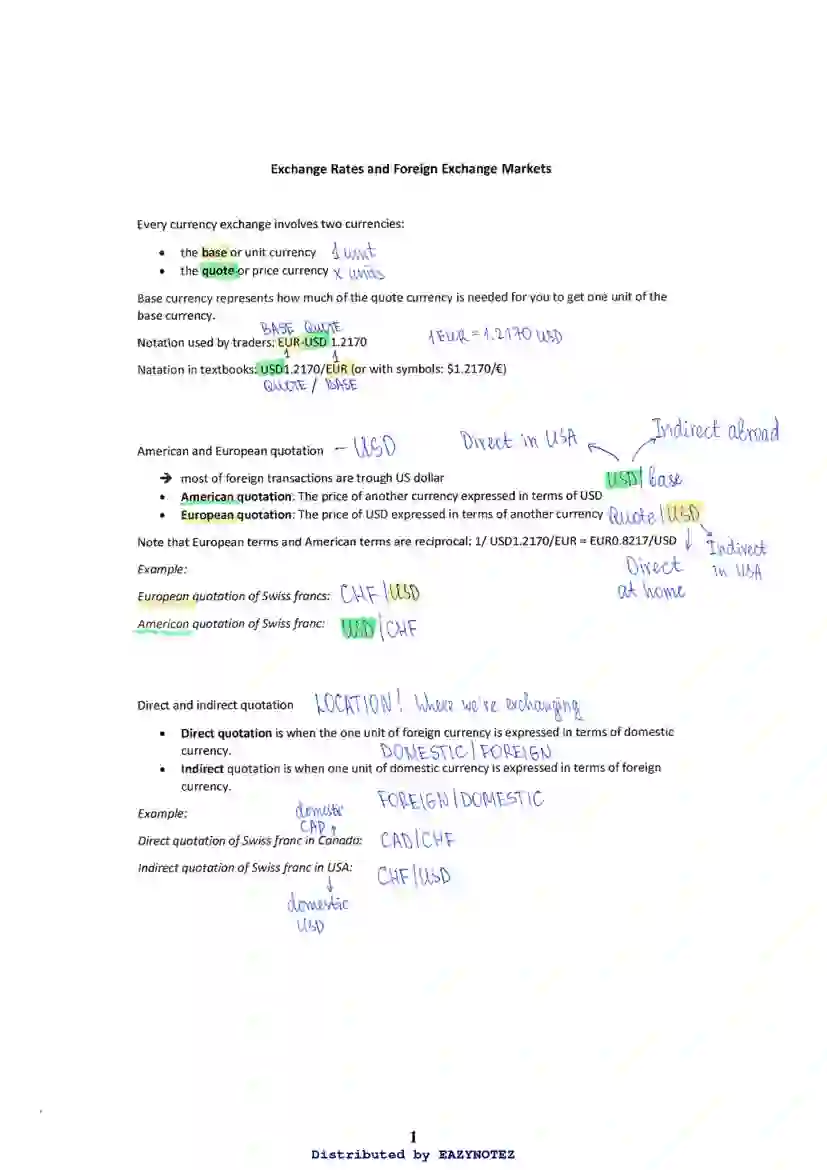 Exchange Rates and Foreign Exchange Markets
Every currency exchange involves two currencies:
• the base or unit currency 1 unit
• the quote or price currency x units
Base currency represents how much of the quote currency is needed for you to get one unit of the
base currency.
BASE QUOTE
Notation used by traders: EUR-USD 1.2170 1 EUR = 1.2170 USD
1 1
Natation in textbooks: USD1.2170/EUR (or with symbols: $1.2170/€)
QUOTE / BASE
American and European quotation – USD Direct in USA Indirect abroad
→ most of foreign transactions are trough US dollar USD/base
• American quotation: The price of another currency expressed in terms of USD
• European quotation: The price of USD expressed in terms of another currency Quote/USD
Note that European terms and American terms are reciprocal: 1/ USD1.2170/EUR = EUR0.8217/USD
Indirect
in USA
Direct
at home
Example:
European quotation of Swiss francs: CHF/USD
American quotation of Swiss franc: USD/CHF
Direct and indirect quotation LOCATION! Where we're exchanging
• Direct quotation is when the one unit of foreign currency is expressed in terms of domestic
currency. DOMESTIC/FOREIGN
• Indirect quotation is when one unit of domestic currency is expressed in terms of foreign
currency.
FOREIGN/DOMESTIC
Example: domestic
CAD
Direct quotation of Swiss franc in Canada: CAD/CHF
Indirect quotation of Swiss franc in USA: CHF/USD
domestic
USD
1
Distributed by EAZYNOTEZ